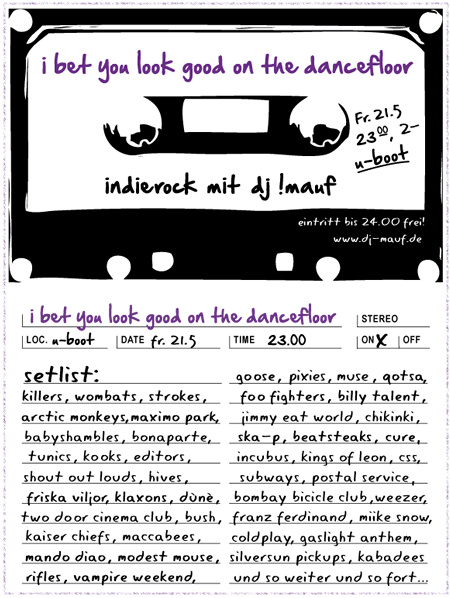 i bet you look good on the dancefloor
Fr. 21.5
23⁰⁰, 2-
u-boot
indierock mit dj !mauf
eintritt bis 24.00 frei!
www.dj-mauf.de
i bet you look good on the dancefloor
STEREO
LOC. u-boot DATE fr. 21.5 TIME 23.00 ON X OFF
setlist:
killers, wombats, strokes,
arctic monkeys, maximo park,
babyshambles, bonaparte,
tunics, kooks, editors,
shout out louds, hives,
friska viljor, klaxons, dùnè,
two door cinema club, bush,
kaiser chiefs, maccabees,
mando diao, modest mouse,
rifles, vampire weekend,
goose, pixies, muse, qotsa,
foo fighters, billy talent,
jimmy eat world, chikinki,
ska-p, beatsteaks, cure,
incubus, kings of leon, css,
subways, postal service,
bombay bicicle club, weezer,
franz ferdinand, miike snow,
coldplay, gaslight anthem,
silversun pickups, kabadees
und so weiter und so fort...